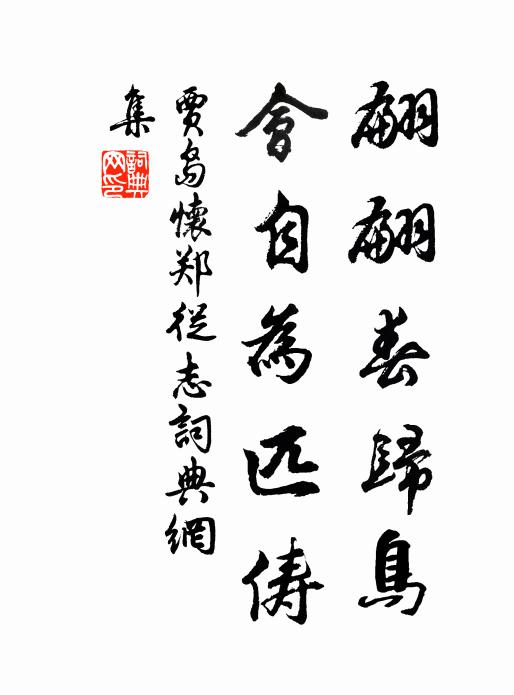 翩翩春歸鳥
會自為匹儔
賈島懷郑從志詞典網
集
詞典
网印